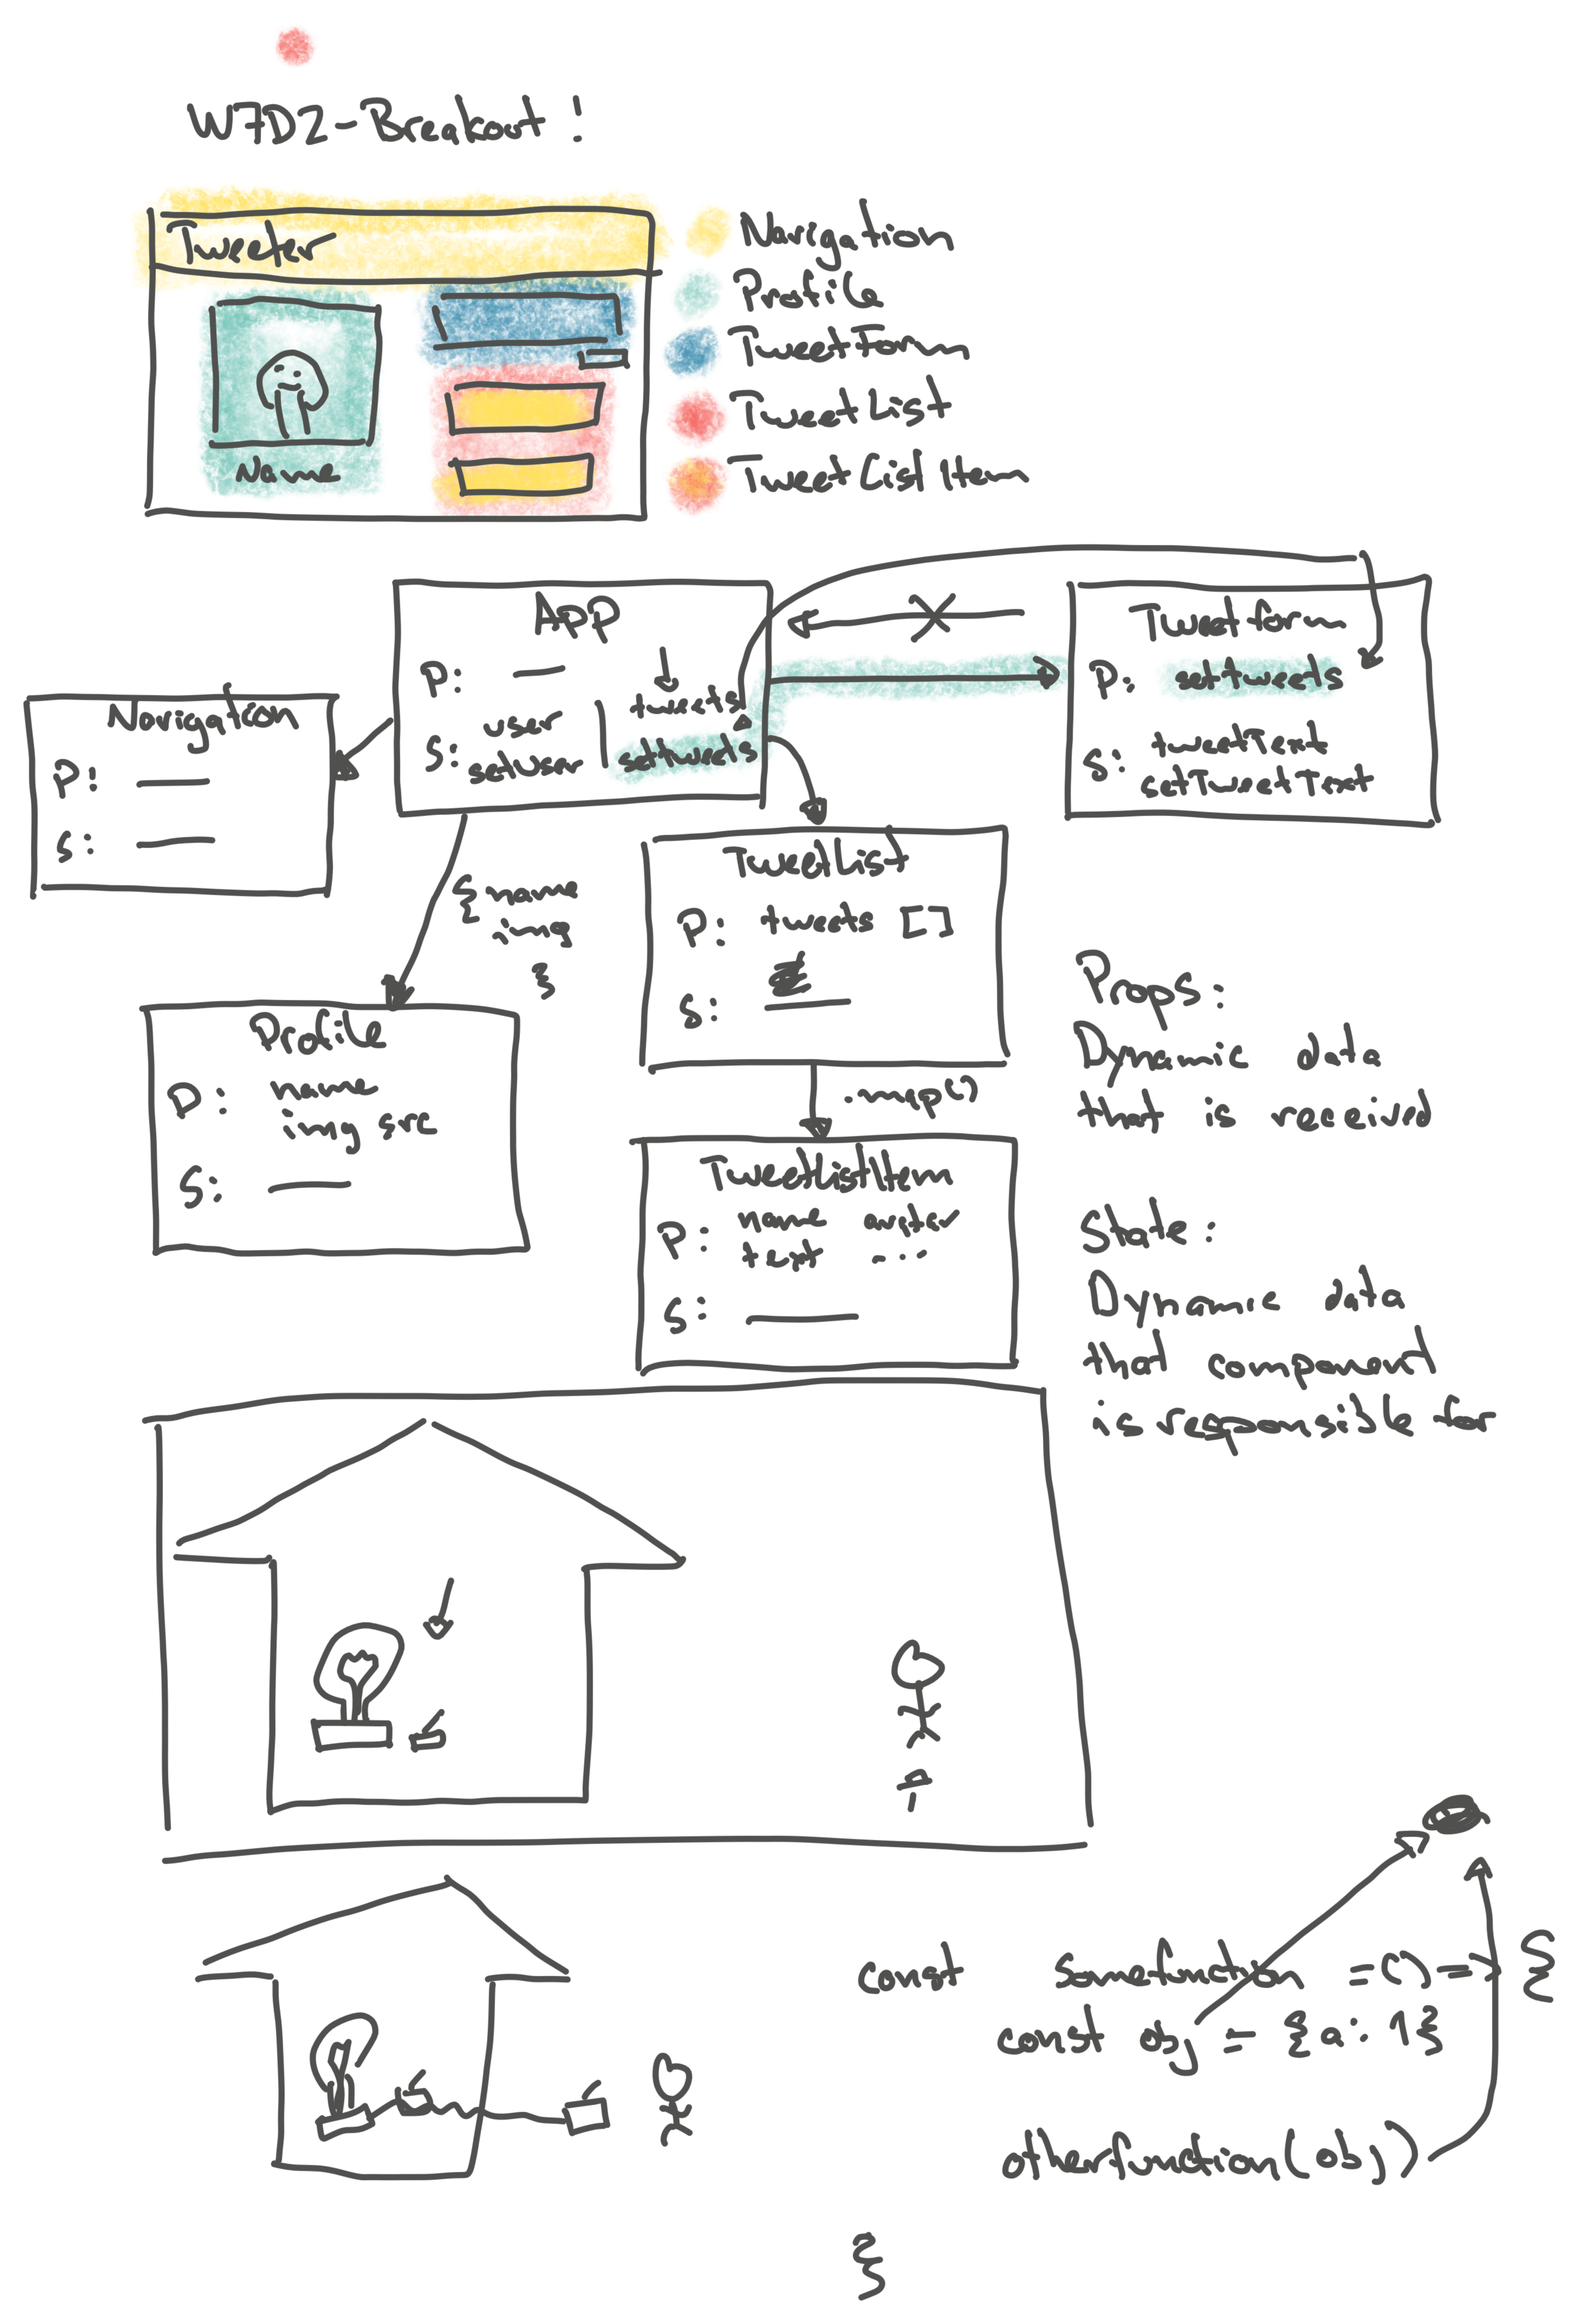 W7D2-Breakout!
Tweeter
Name
Navigation
Profile
TweetForm
TweetList
TweetListItem
App
P:
S: user
setUser
tweets
settweets
Tweetform
P: settweets
S: tweetText
setTweetText
Navigation
P:
S:
{ name
img
}
TweetList
P: tweets []
S:
Profile
P: name
img src
S:
.map()
TweetListItem
P: name avatar
text ...
S:
Props:
Dynamic data
that is received
State:
Dynamic data
that component
is responsible for
const somefunction = () => {
const obj = {a: 1}
otherfunction(obj)
}